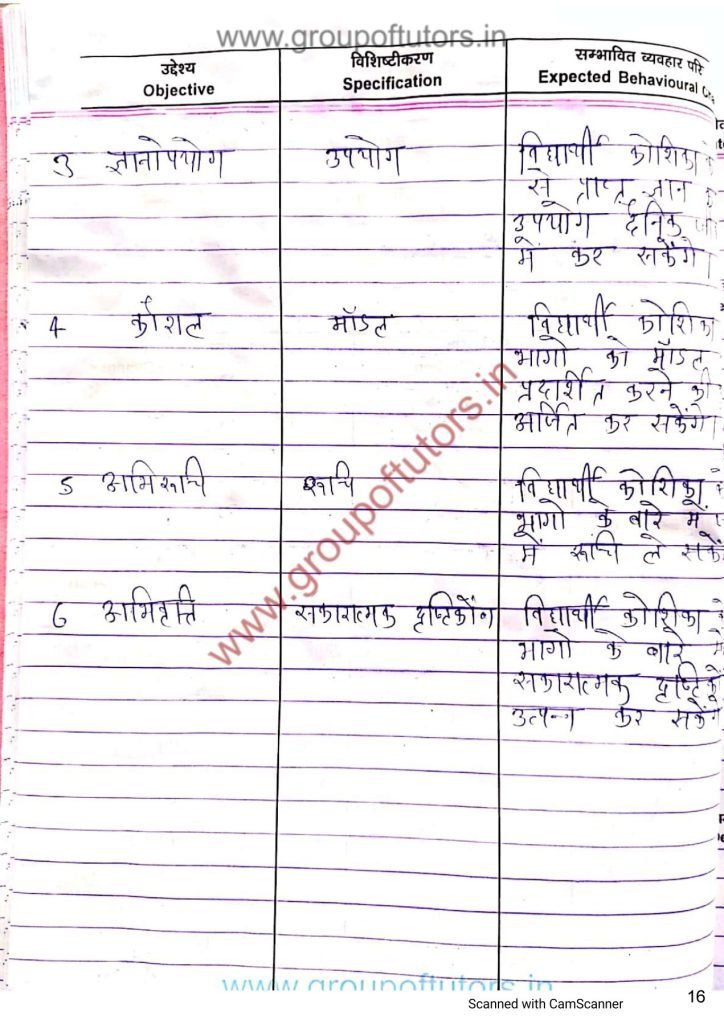 www.groupoftutors.in
उद्देश्य
Objective
विशिष्टीकरण
Specification
सम्भावित व्यवहार परि
Expected Behavioural
3 ज्ञानोपयोग
उपयोग
विद्यार्थी कोशिका
से प्राप्त ज्ञान
उपयोग दैनिक
में कर सकेंगे।
4 कौशल
मॉडल
विद्यार्थी कोशिका
भागो को मॉडल
प्रदर्शित करने की
अर्जित कर सकेंगे।
5 अभिरूचि
रूचि
विद्यार्थी कोशिका
भागो के बारे में
में रूचि ले सकें
6 अभिवृत्ति
सकारात्मक दृष्टिकोंन
विद्यार्थी कोशिका
भागो के बारे मे
सकारात्मक दृष्टिको
उत्पन्न कर सकेंग
www.groupoftutors.in
www.groupoftutors.in
Scanned with CamScanner
16